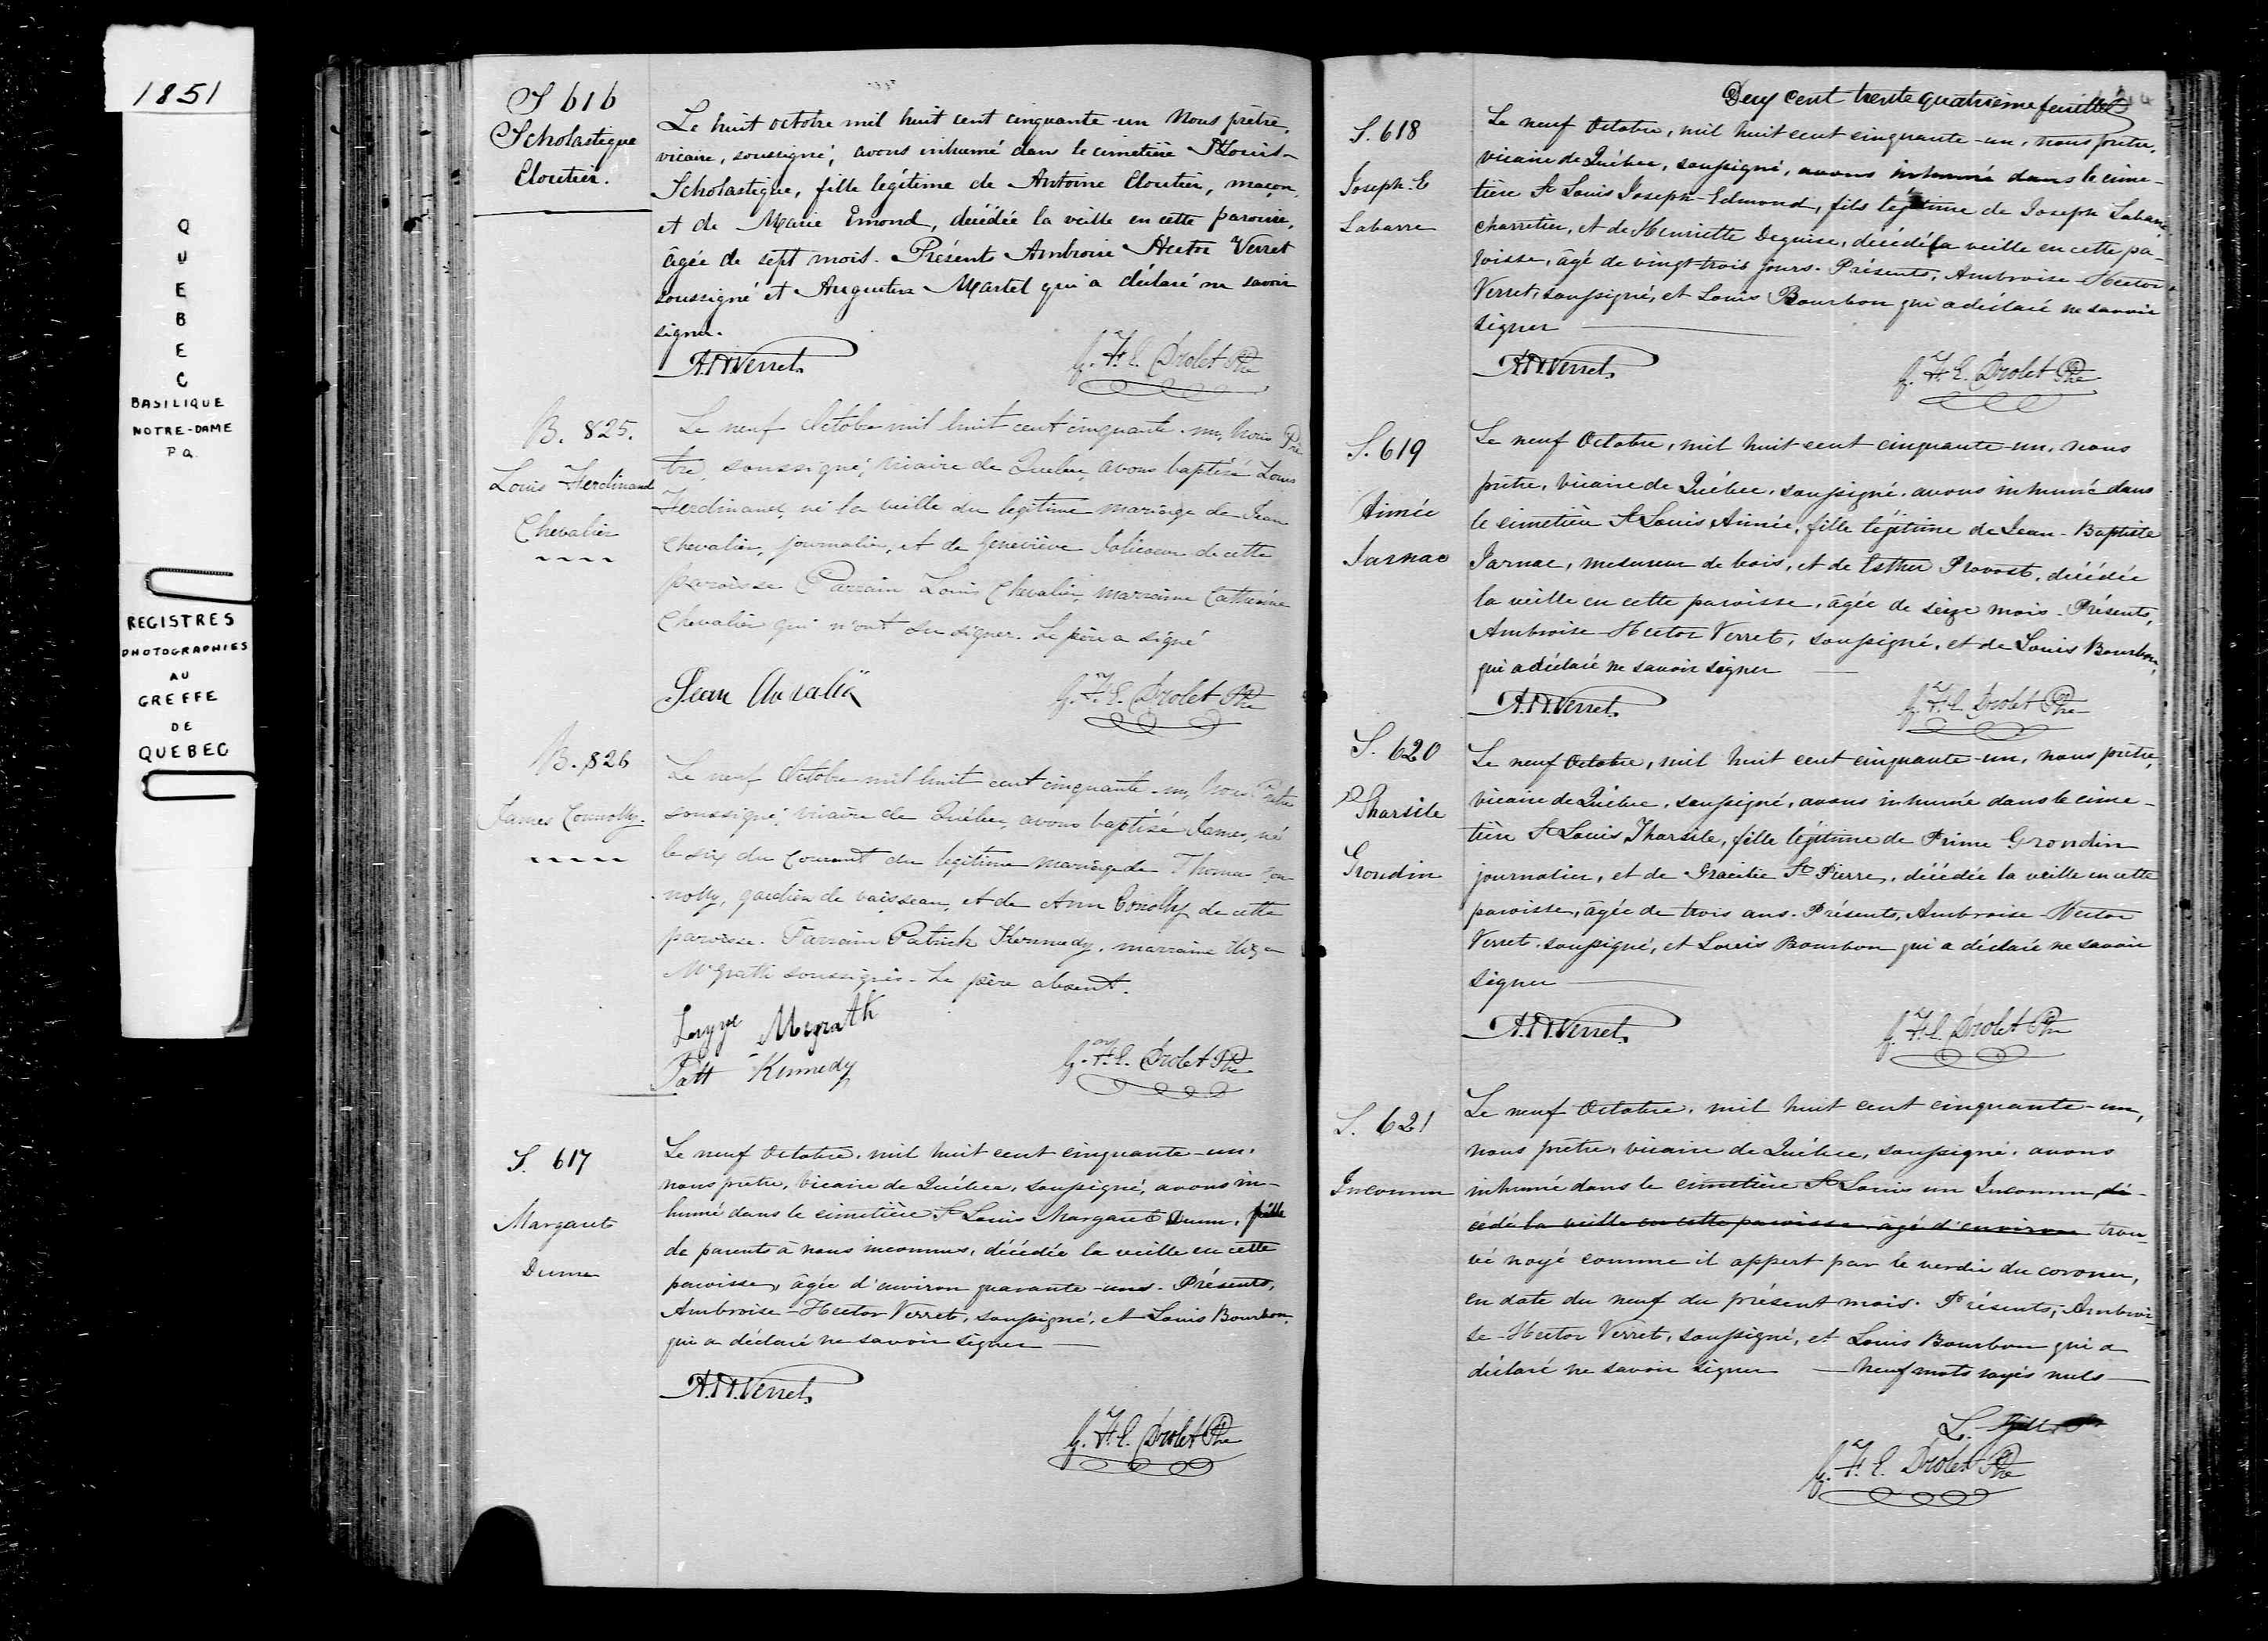 1851
QUEBEC
BASILIQUE
NOTRE-DAME
P.Q.
REGISTRES
PHOTOGRAPHIES
AU
GREFFE
DE
QUEBEC
S 616
Scholastique
Cloutier.
Le huit octobre mil huit cent cinquante-un Nous prêtre,
vicaire, soussigné, avons inhumé dans le cimetière St Louis-
Scholastique, fille légitime de Antoine Cloutier, maçon,
et de Marie Emond, décédée la veille en cette paroisse,
âgée de sept mois. Présents Ambroise Hector Verret
soussigné et Augustin Martel qui a déclaré ne savoir
signer.
A.H. Verret
G. H. E. Drolet Ptre
B. 825.
Louis Ferdinand
Chevalier
Le neuf Octobre mil huit cent cinquante-un, Nous Prê
tre, soussigné, vicaire de Quebec, avons baptisé Louis
Ferdinand, né la veille du legitime mariage de Jean
Chevalier, journalier, et de Geneviève Jolicoeur de cette
paroisse Parrain Louis Chevalier, marraine Catherine
Chevalier qui n'ont su signer. Le père a signé
Jean
G. H. E. Drolet Ptre
B. 826
James Connolly.
Le neuf Octobre mil huit cent cinquante-un, Nous Prêtre
soussigné, vicaire de Québec, avons baptisé James, né
le six du courant du legitime mariage de Thomas Con
nolly, gardien de vaisseau, et de Ann Conolly de cette
paroisse. Parrain Patrick Kennedy, marraine
McGrath soussignés. Le père absent.
Megrath
Patt Kennedy
G. H. E. Drolet Ptre
S. 617
Margaret
Dunn
Le neuf Octobre, mil huit cent cinquante-un,
nous prêtre, vicaire de Québec, soussigné, avons in-
humé dans le cimetière St Louis Margaret Dunn, fille
de parents à nous inconnus, décédée la veille en cette
paroisse, âgée d'environ quarante-ans. Présents,
Ambroise-Hector Verret, soussigné, et Louis Bourbon,
qui a déclaré ne savoir signer
A.H. Verret
G. H. E. Drolet Ptre
Deux cent trente quatrième feuillet
S. 618
Joseph-E
Labarre
Le neuf Octobre, mil huit cent cinquante-un, nous prêtre,
vicaire de Québec, soussigné, avons inhumé dans le cime-
tière St Louis Joseph-Edmond, fils légitime de Joseph Labarre,
charretier, et de Henriette Deguise, décédé la veille en cette pa-
roisse, âgé de vingt-trois jours. Présents, Ambroise-Hector
Verret, soussigné, et Louis Bourbon qui a déclaré ne savoir
signer
A.H. Verret
G. H. E. Drolet Ptre
S. 619
Aimée
Jarnac
Le neuf Octobre, mil huit cent cinquante-un, nous
prêtre, vicaire de Québec, soussigné, avons inhumé dans
le cimetière St Louis Aimée, fille légitime de Jean-Baptiste
Jarnac, mesureur de bois, et de Esther Provost, décédée
la veille en cette paroisse, âgée de seize mois. Présents,
Ambroise-Hector Verret, soussigné, et de Louis Bourbon,
qui a déclaré ne savoir signer
A.H. Verret
G. H. E. Drolet Ptre
S. 620
Tharsile
Grondin
Le neuf Octobre, mil huit cent cinquante-un, nous prêtre,
vicaire de Québec, soussigné, avons inhumée dans le cime-
tière St Louis Tharsile, fille légitime de Prime Grondin
journalier, et de St Pierre, décédée la veille en cette
paroisse, âgée de trois ans. Présents, Ambroise-Hector
Verret, soussigné, et Louis Bourbon qui a déclaré ne savoir
signer
A.H. Verret
G. H. E. Drolet Ptre
S. 621
Inconnu
Le neuf Octobre, mil huit cent cinquante-un,
nous prêtre, vicaire de Québec, soussigné, avons
inhumé dans le cimetière St Louis un Inconnu dé-
cédé la veille en cette paroisse âgé d'environ trou-
vé noyé comme il appert par le verdic du coroner,
en date du neuf du présent mois. Présents, Ambroi-
se-Hector Verret, soussigné, et Louis Bourbon qui a
déclaré ne savoir signer — Neuf mots rayés nuls —
G. H. E. Drolet Ptre